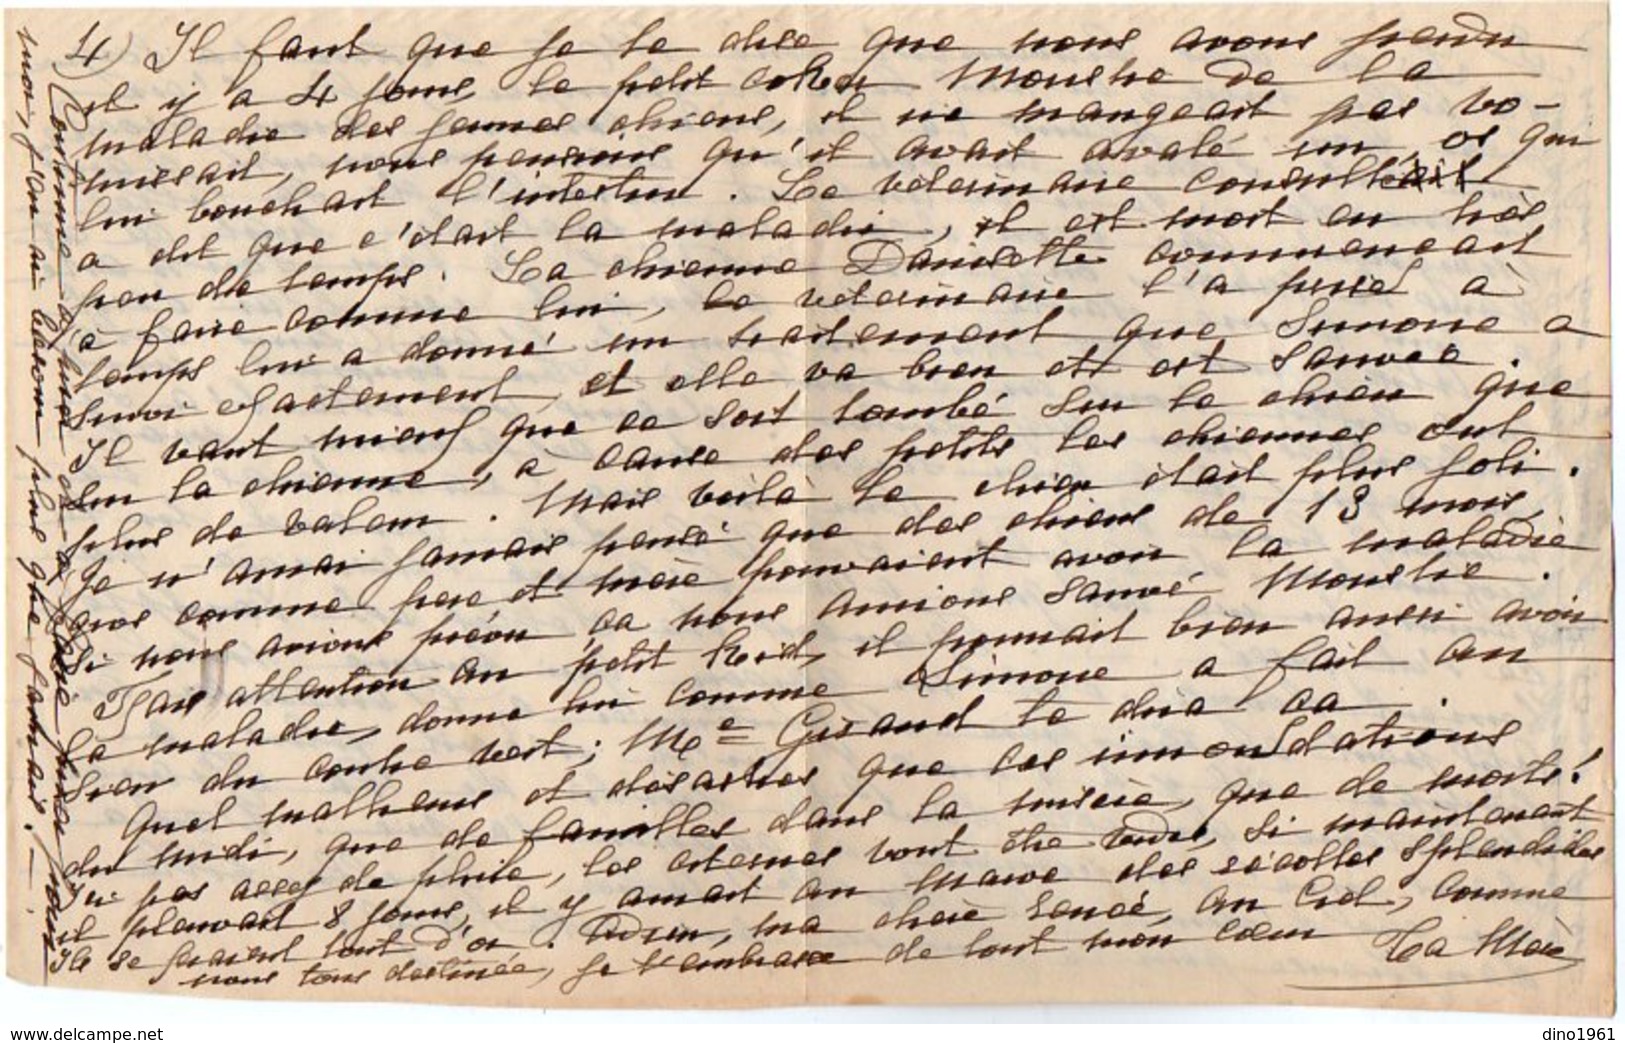 4) Il faut que je te dise que nous avons perdu
il y a 4 jours, le petit coken Moustic de la
maladie des jeunes chiens, il ne mangeait pas vo-
missait, nous pensions qu'il avait avalé un os qui
lui bouchait l'intestin. Le vétérinaire consulté
a dit que c'était la maladie, il est mort en très
peu de temps. La chienne Danisette commencait
à faire comme lui, le vétérinaire l'a prise à
temps lui a donné un traitement que Simone a
suivi exactement, et elle va bien et est sauvée.
Il vaut mieux que ca soit tombé sur le chien que
sur la chienne, à cause des petits les chiennes ont
plus de valeur. Mais voilà le chien était plus joli.
Je n'aurai jamais pensé que des chiens de 13 mois,
gros comme pere et mère pouvaient avoir la maladie
si nous avions prévu ca nous aurions sauvé Moustic.
Fais attention au petit Keid, il pourrait bien aussi avoir
la maladie, donne lui comme Simone a fait au
sien du contre vert; Me Girand te dira ca.
Quel malheurs et désastres que ces innondations
du midi, que de familles dans la misère, que de morts!
Ici pas assez de pluie, les citernes vont être vides, si maintenant
il pleuvait 8 jours, il y aurait au Maroc des récoltes splendides
Ils se feraient tout d'or. Adieu, ma chère Renée, au Ciel, comme
nous tous destinée, je t'embrasse de tout mon cœur Ta Mère
Continue à prier pour
moi, j'en ai besoin plus que jamais.
www.delcampe.net
dino1961